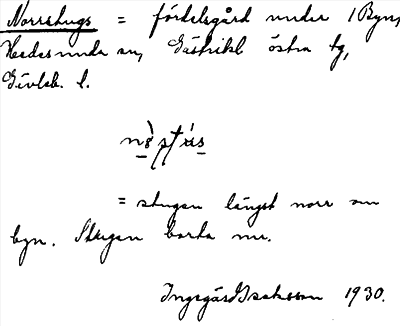 Norrstugs = fördelsgård under 1 Byn,
Hedesunda sn, Gästrikl östra tg,
Gävleb. l.
= stugan längst norr om
byn. Stugan borta nu.
Ingegärd Isaksson 1930.